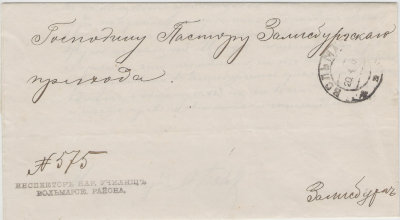 Господину Пастору Залисбургскаго
прихода.
ВОЛЬМА
№ 575
ИНСПЕКТОРЪ НАР. УЧИЛИЩЪ
ВОЛЬМАРСК. РАЙОНА.
Залисбургъ